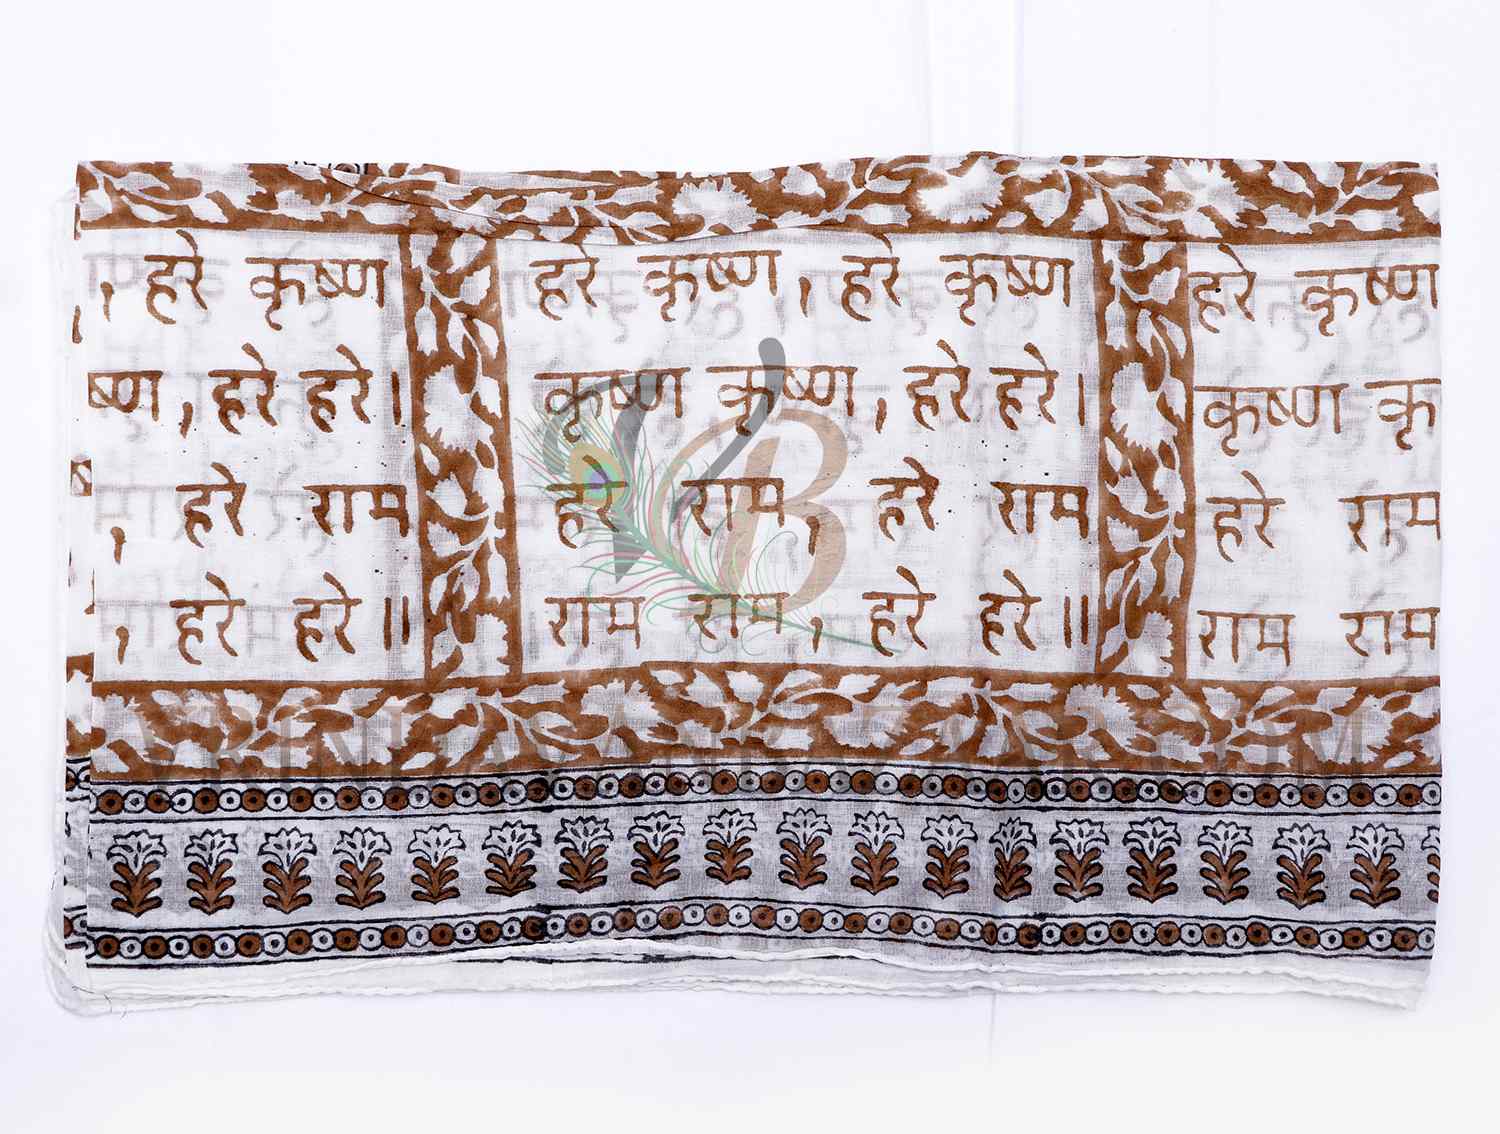 , हरे कृष्ण
ष्ण , हरे हरे ।
, हरे राम
, हरे हरे ॥
हरे कृष्ण , हरे कृष्ण
कृष्ण कृष्ण , हरे हरे ।
हरे राम , हरे राम
राम राम , हरे हरे ॥
हरे कृष्ण
कृष्ण कृ
हरे राम
राम राम
VB
VRINDAVANBAZAAR.COM